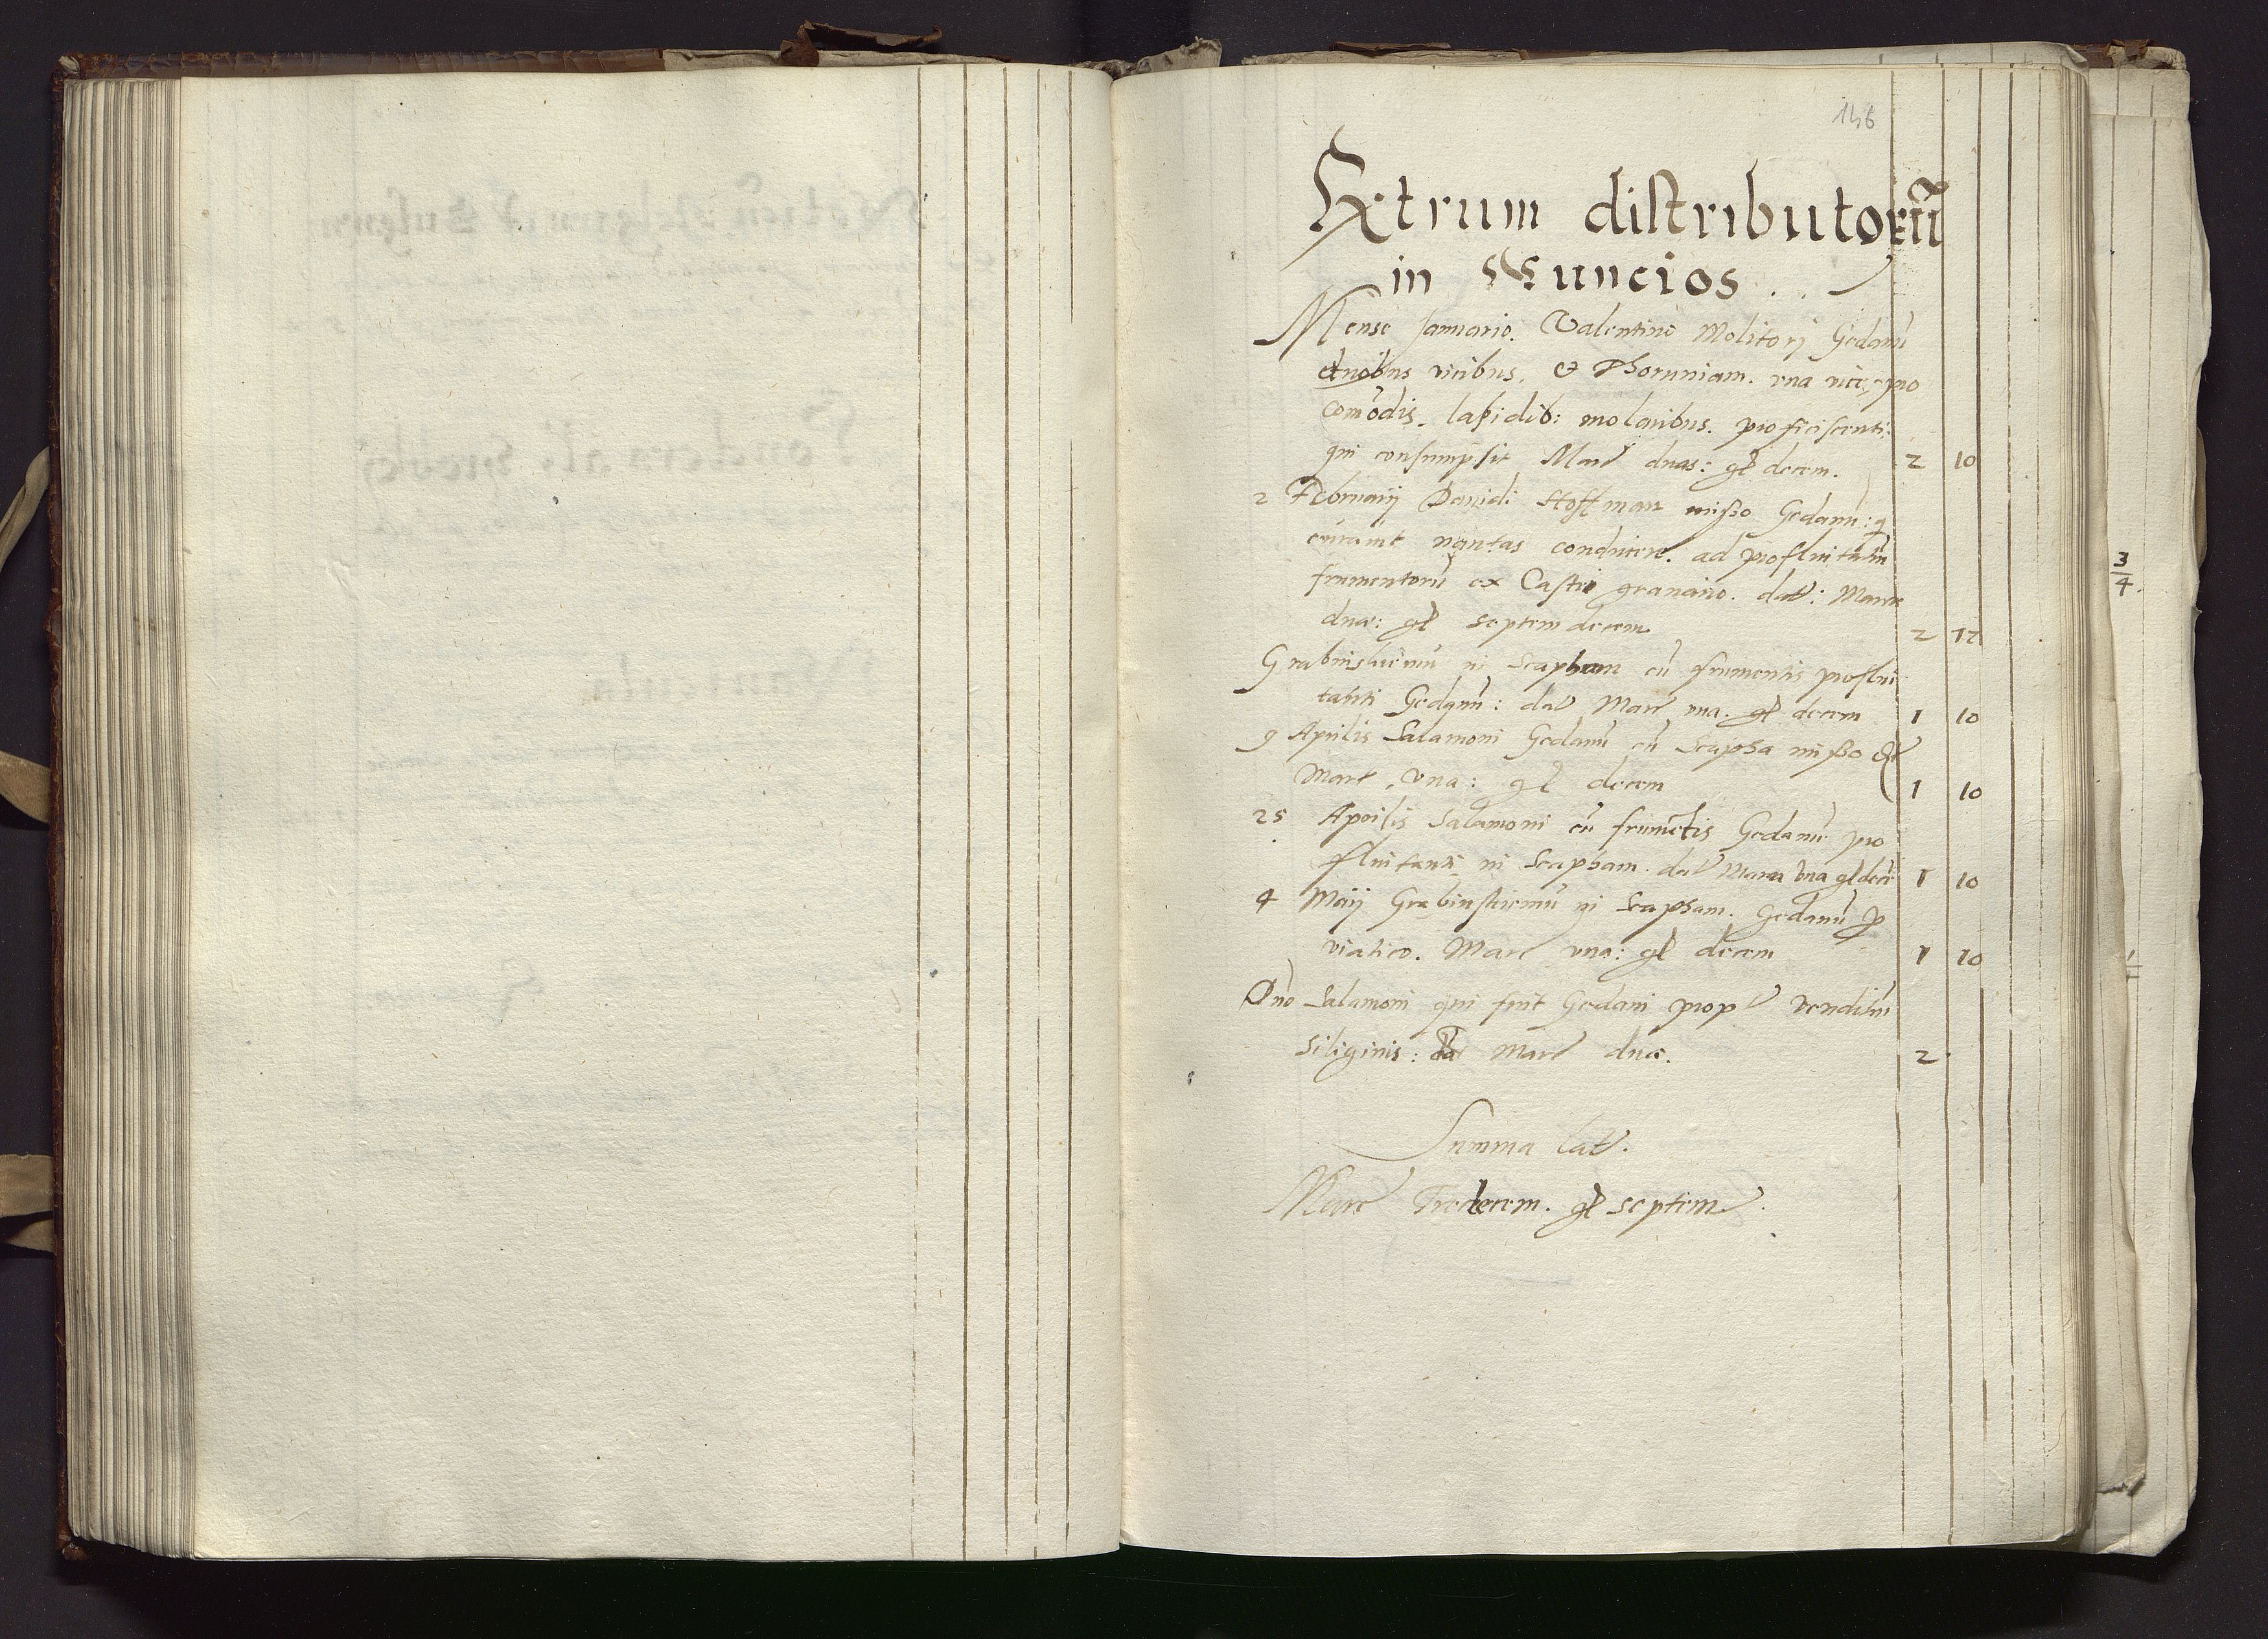 146
Extrum distributorũ
in Nuncios
Mense Januario. Valentino Molitorj Gedanũ
duobus vicibus, et Thoruniam. vna vice, pro
com̃odis lapidib: molaribus. proficiscenti:
qui consumpsit Marc duas: gl decem. 2 10
2 Februarij Dauidi Hoffman misso Gedanũ: q
nautas conducere. ad profluitatũ
frumentorũ ex Castri granario. dat: Marce
duæ: gl septem decem 2 17
in Scapham cũ frumentis proflui
tanti Gedanũ: dat Marc vna. gl decem 1 10
9 Aprilis Salamoni Gedanũ cũ Scapha misso dat
Marc vna: gl decem 1 10
25 Aprilis Salamoni cũ frumẽtis Gedanũ pro
fluitanti in Scapham. dat Marca vna gl decẽ 1 10
4 Maij in Scapham. Gedanũ p
viatico. Marc vna: gl decem 1 10
Dno Salamoni qui fuit Gedani propt venditũ
Siliginis: dat Marc duæ. 2
Summa lat.
Marc Tredecem. gl septem
3
4